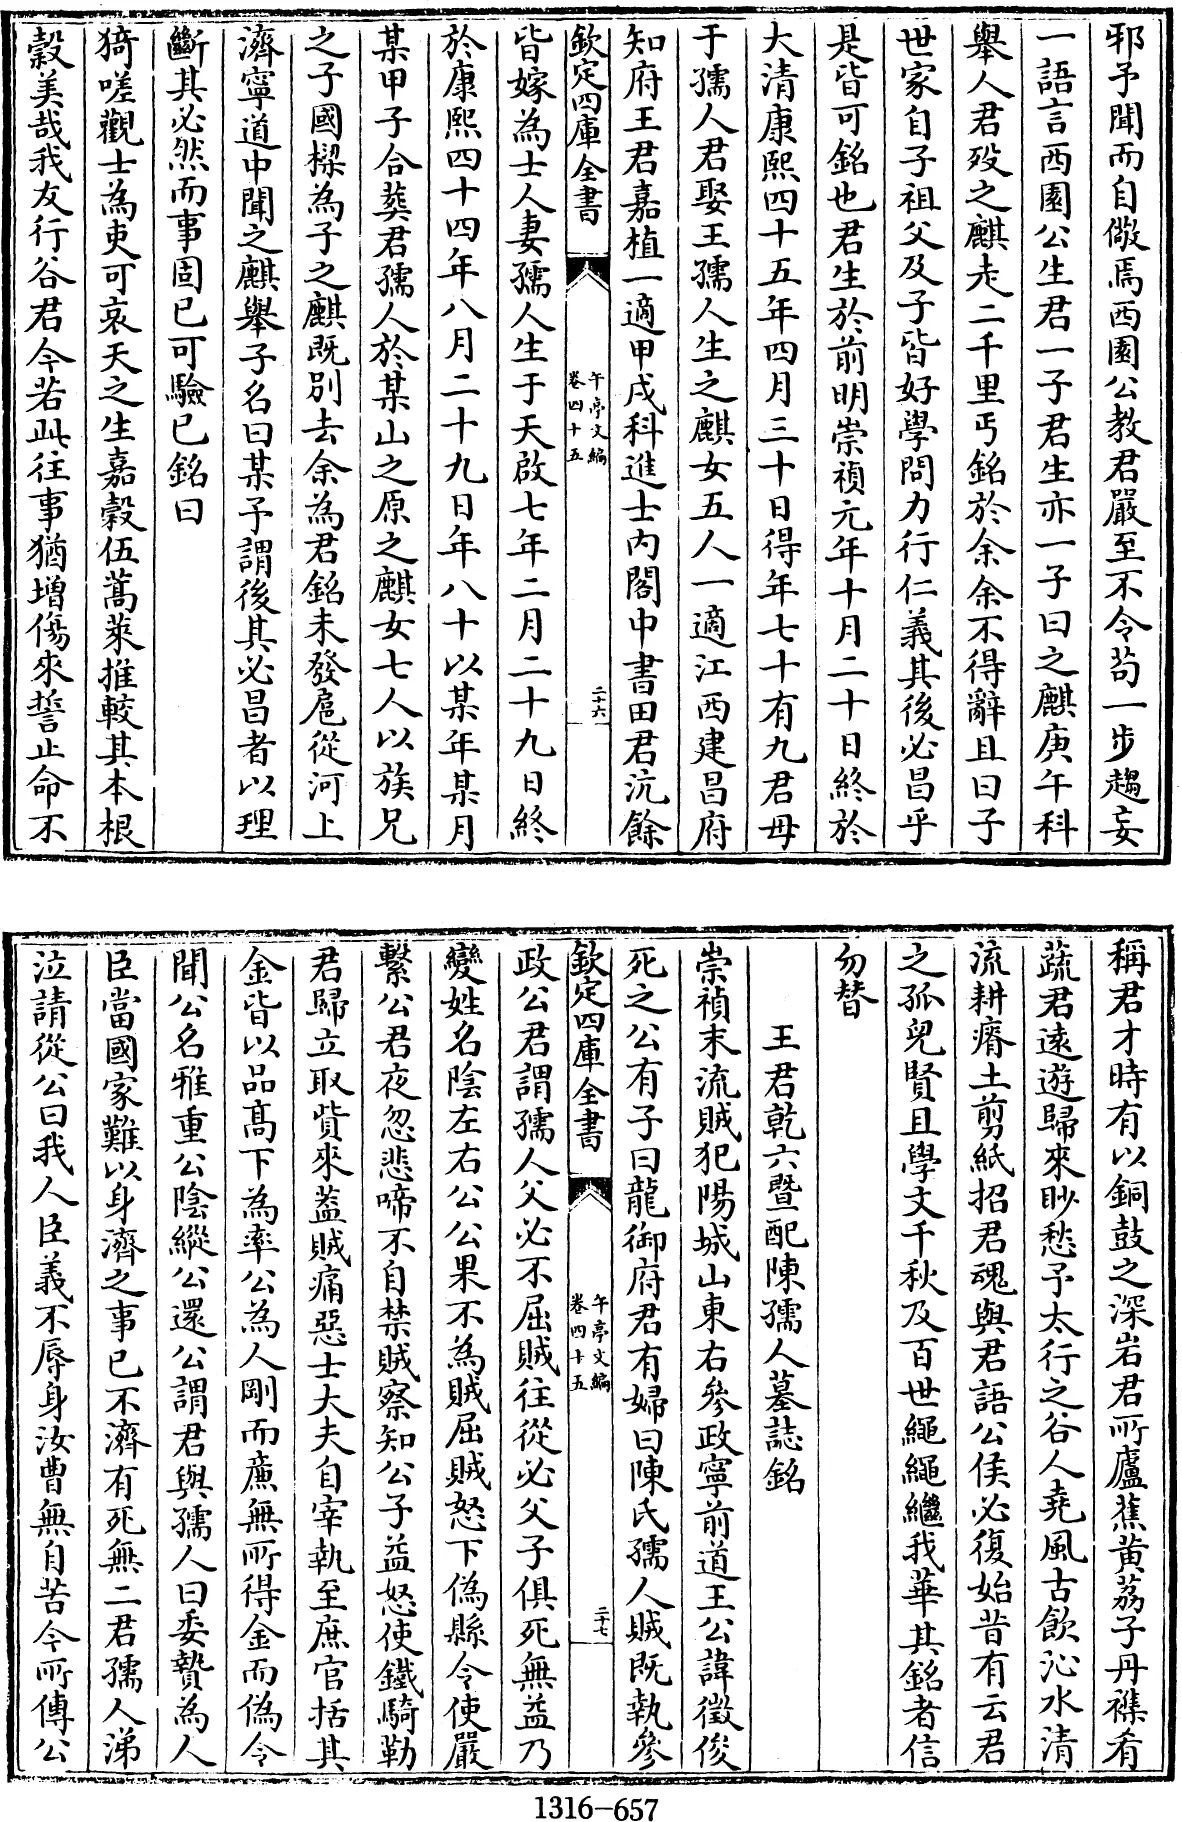 邪予聞而自儆焉西園公教君嚴至不令苟一步趨妄
一語言西園公生君一子君生亦一子曰之麒庚午科
舉人君殁之麒走二千里丐銘於余余不得辭且曰子
世家自子祖父及子皆好學問力行仁義其後必昌乎
是皆可銘也君生於前明崇禎元年十月二十日終於
大清康熙四十五年四月三十日得年七十有九君毋
于孺人君娶王孺人生之麒女五人一適江西建昌府
知府王君嘉植一適甲戌科進士内閣中書田君沆餘
欽定四庫全書
午亭文編
卷四十五
二十六
皆嫁為士人妻孺人生于天啟七年二月二十九日終
於康熙四十四年八月二十九日年八十以某年某月
某甲子合葬君孺人於某山之原之麒女七人以族兄
之子國樑為子之麒既別去余為君銘未發扈從河上
濟寧道中聞之麒舉子名曰某予謂後其必昌者以理
斷其必然而事固已可驗已銘曰
猗嗟觀士為吏可哀天之生嘉穀伍蒿萊推較其本根
穀美哉我友行谷君今若此往事猶增傷來誓止命不
稱君才時有以銅鼓之深岩君所廬蕉黄荔子丹襍肴
蔬君遠遊歸來眇愁予太行之谷人堯風古飲沁水清
流耕瘠土剪紙招君魂與君語公侯必復始昔有云君
之孤兒賢且學文千秋及百世繩繩繼我華其銘者信
勿替
王君乾六暨配陳孺人墓誌銘
崇禎末流賊犯陽城山東右參政寧前道王公諱徵俊
死之公有子曰龍御府君有婦曰陳氏孺人賊既執參
欽定四庫全書
午亭文編
卷四十五
二十七
政公君謂孺人父必不屈賊往從必父子俱死無益乃
變姓名陰左右公公果不為賊屈賊怒下偽縣令使嚴
繫公君夜忽悲啼不自禁賊察知公子益怒使鐵騎勒
君歸立取貲來葢賊痛惡士大夫自宰執至庶官括其
金皆以品高下為率公為人剛而廉無所得金而偽令
聞公名雅重公陰縱公還公謂君與孺人曰委贄為人
臣當國家難以身濟之事已不濟有死無二君孺人涕
泣請從公曰我人臣義不辱身汝曹無自苦今所傳公
1316-657